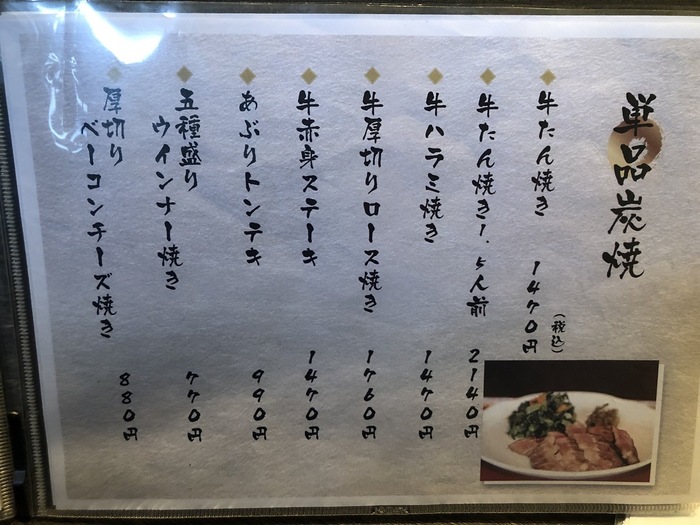 単品炭焼
牛たん焼き 1470円
(税込)
牛たん焼き1.5人前 2140円
牛ハラミ焼き 1470円
牛厚切りロース焼き 1760円
牛赤身ステーキ 1470円
あぶりトンテキ 990円
五種盛り
ウインナー焼き 770円
厚切り
ベーコンチーズ焼き 880円